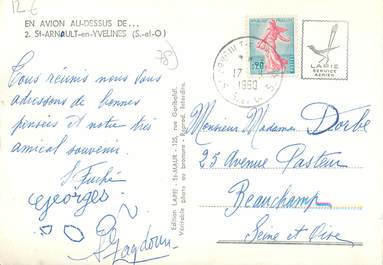 12 €
EN AVION AU-DESSUS DE...
2. St-ARNAULT-en-YVELINES (S.-et-O.)
78
Tous réunis nous vous
adressons de bonnes
pensées et notre très
amical souvenir.
Georges
Edition LAPIE - St-MAUR - 125, rue Garibaldi.
Véritable photo au bromure - Reprod. interdite.
17
1960
0,20
LAPIE
SERVICE
AÉRIEN
Monsieur Madame Dorbe
25 Avenue Pasteur
Beauchamp
Seine et Oise